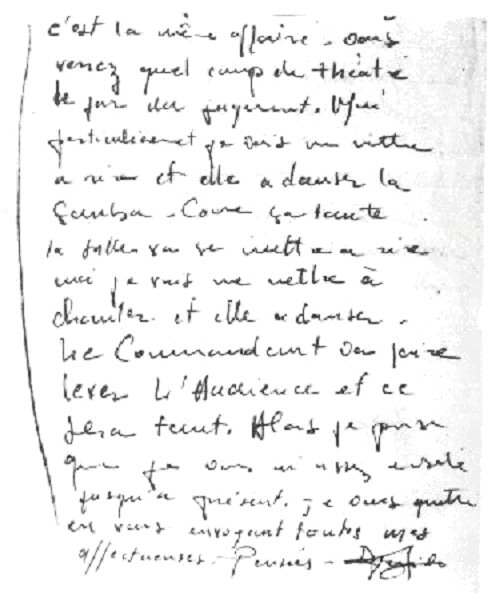 c'est la même affaire. Vous
verrez quel coup de théâtre
le jour du jugement. Moi
particulièrement je vais me mettre
a rire et elle a danser la
Samba. Comme ça toute
la salle va se mettre a rire
moi je vais me mettre à
chanter et elle a danser.
Le Commandant va faire
lever l'Audience et ce
sera tout. Alors je pense
que je vous ai assez
jusqu'a présent. je vous quitte
en vous envoyant toutes mes
affectueuses Pensées -